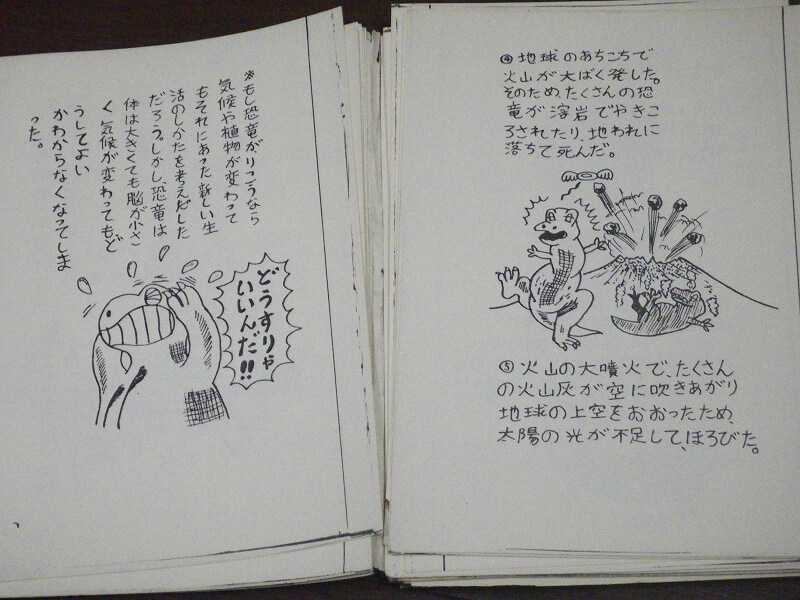 ※もし恐竜がりこうなら
気候や植物が変わって
もそれにあった新しい生
活のしかたを考えだした
だろう。しかし、恐竜は
体は大きくても脳が小さ
く気候が変わってもど
うしてよい
かわからなくなってしま
った。
どうすりゃ
いいんだ!!
④地球のあちこちで
火山が大ばく発した。
そのため、たくさんの恐
竜が溶岩でやきこ
ろされたり、地われに
落ちて死んだ。
⑤火山の大噴火で、たくさん
の火山灰が空に吹きあがり
地球の上空をおおったため、
太陽の光が不足して、ほろびた。